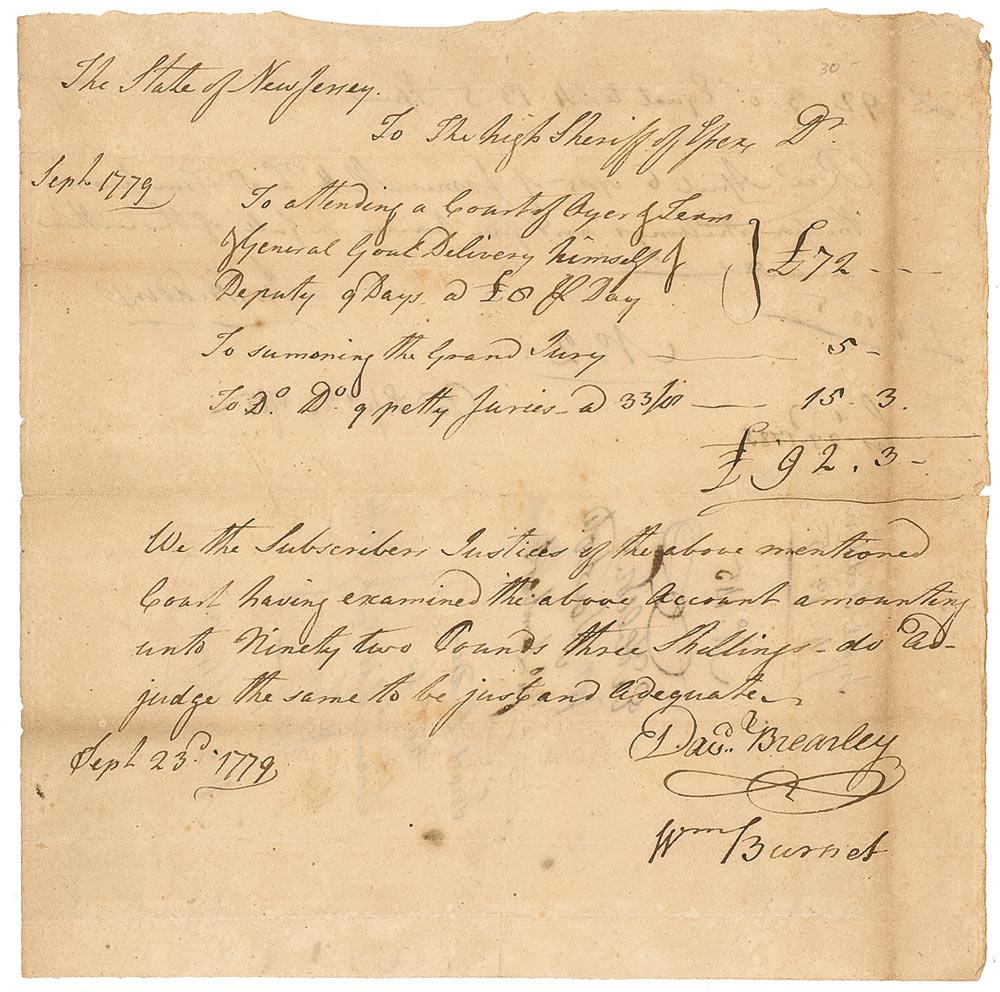 30-
The State of New Jersey.
To The high Sheriff of Essex Dr
Sept 1779
To attending a Court of Oyer & Term
& General Goal Delivery himself &
Deputy 9 Days a £8 ⅌ Day } £72 - - -
To sumoning the Grand Jury — 5 -
To Do. Do. 9 petty Juries - a 33/10 — 15 3.
£ 92. 3 -
We the Subscribers Justices of the above mentioned
Court having examined the above Account amounting
unto Ninety two Pounds three Shillings - do Ad-
judge the same to be just and Adequate
Sept 23d. 1779
Davd. Brearley
Wm Burnet